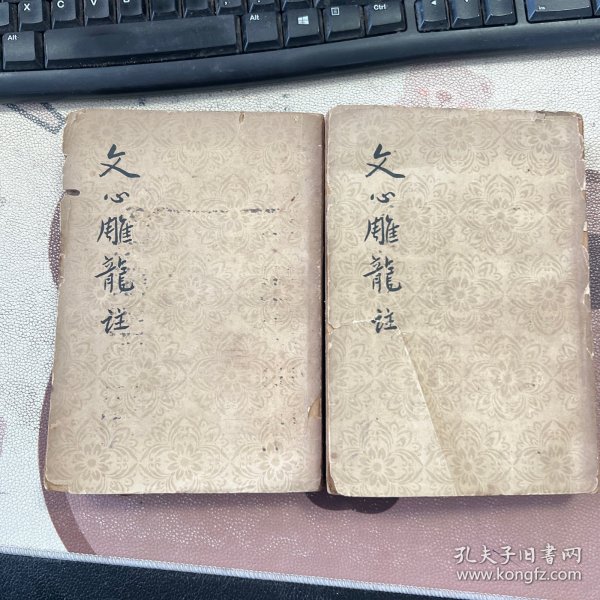 文心雕龍註
文心雕龍註
孔夫子旧书网
www.kongfz.com
Alt
Alt
Ctrl
Z
X
C
V
B
N
M